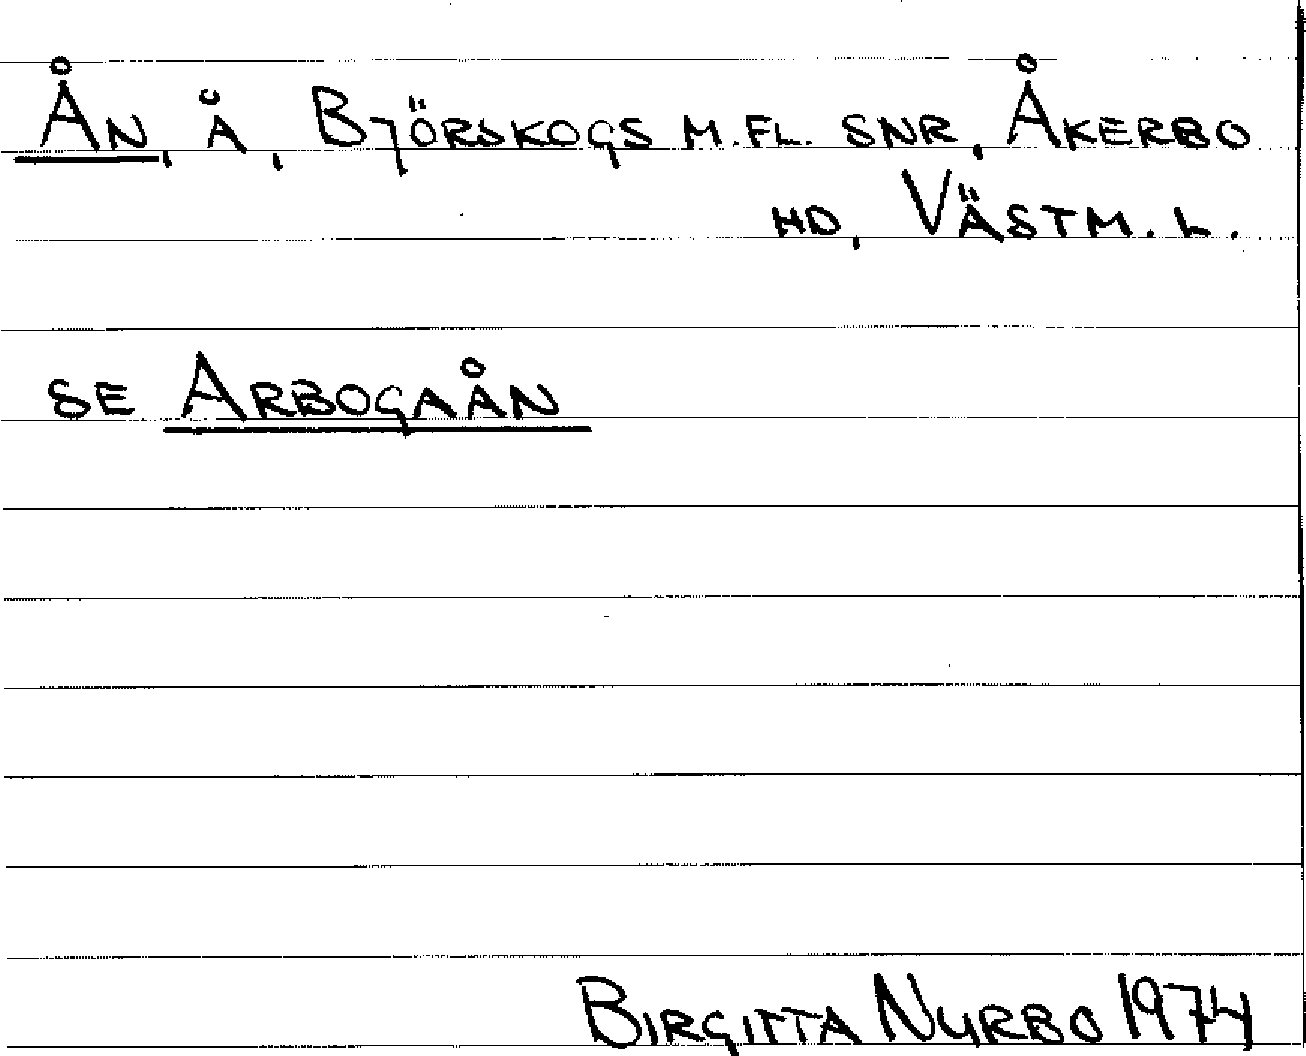 Ån, å, Björskogs m.fl. snr, Åkerbo
hd, Västm. l.
se Arbogaån
Birgitta Nyrbo 1974